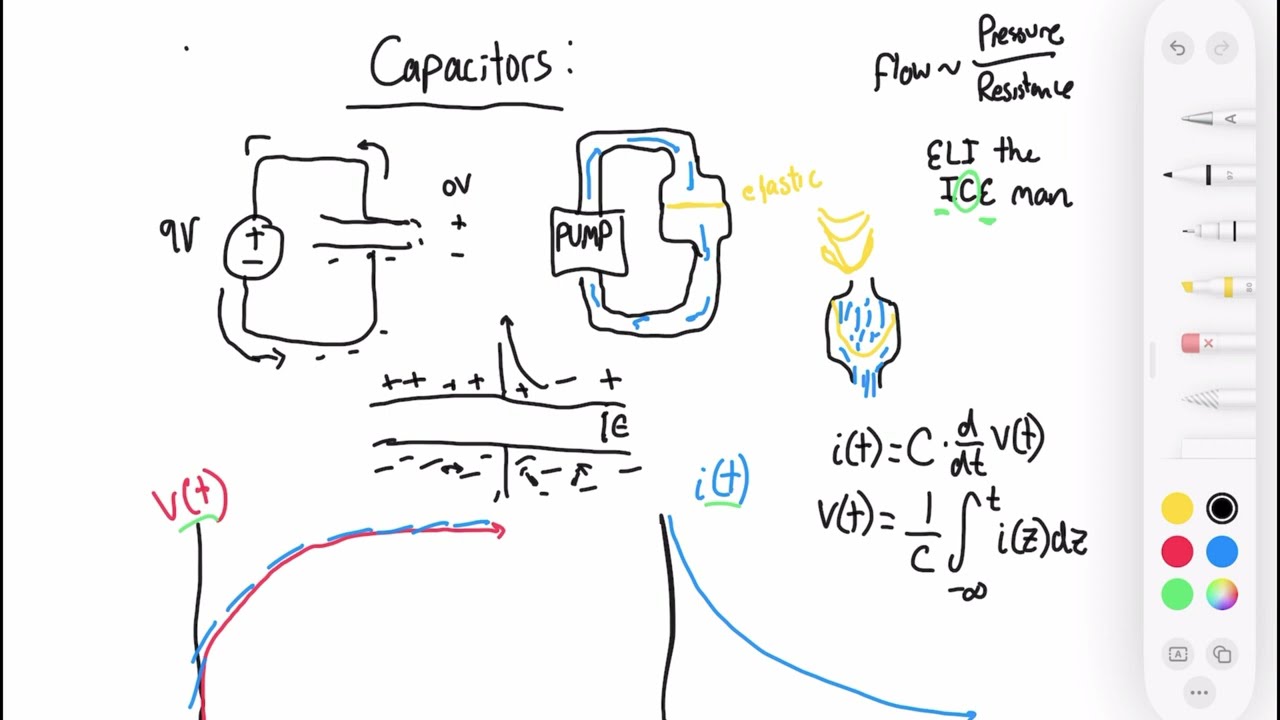 Capacitors:
Flow ~ Pressure
Resistance
ELI the
ICE man
9V
+
−
0V
+
−
PUMP
elastic
++ ++ + − +
1E
V(t)
i(t)
i(t) = C · d/dt V(t)
V(t) = 1/C ∫ t −∞ i(z)dz
A
97
80
A